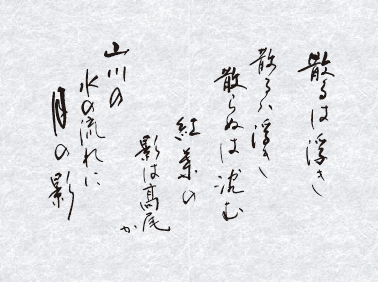 散るは浮き
散らぬは沈む
紅葉の
影は高尾
か
山川の
水の流れに
月の影